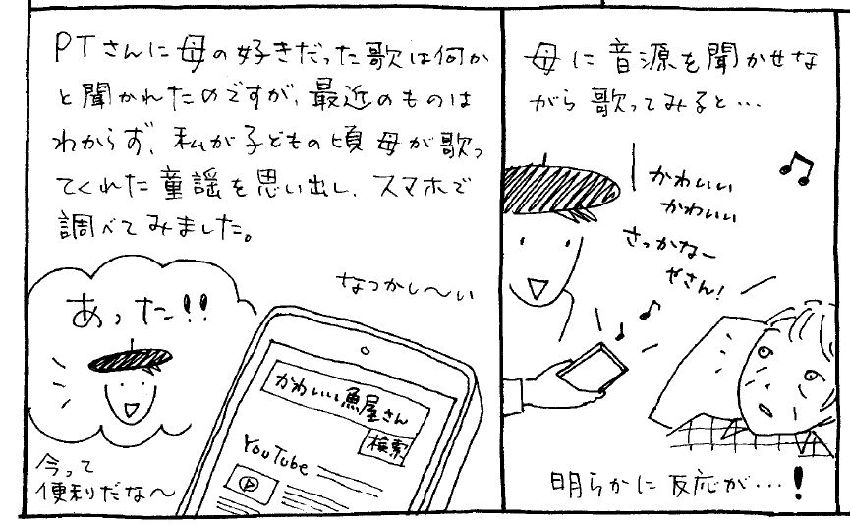 PTさんに母の好きだった歌は何か
と聞かれたのですが、最近のものは
わからず、私が子どもの頃母が歌っ
てくれた童謡を思い出し、スマホで
調べてみました。
あった!!
なつかし〜い
かわいい魚屋さん
検索
YouTube
今って
便利だな〜
母に音源を聞かせな
がら歌ってみると…
かわいい
かわいい
さっかなー
やさん!
明らかに反応が…!